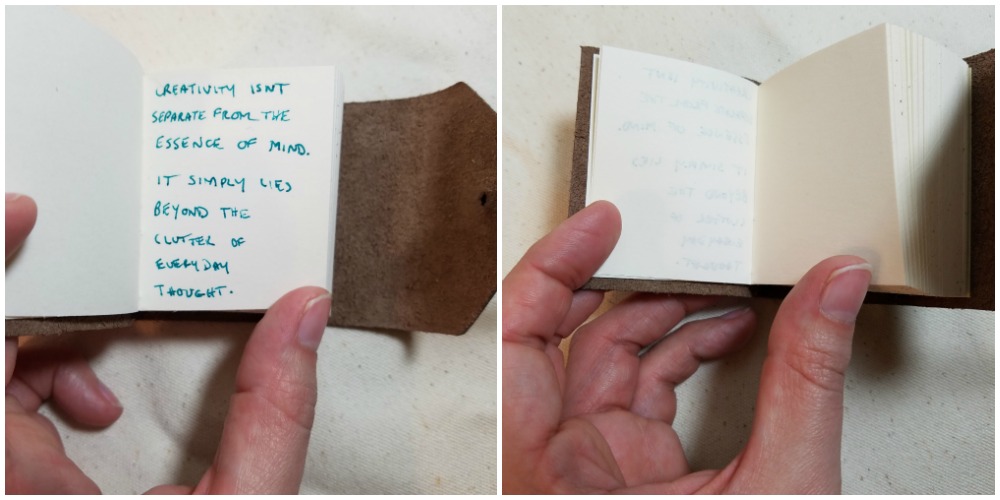 CREATIVITY ISNT
SEPARATE FROM THE
ESSENCE OF MIND.
IT SIMPLY LIES
BEYOND THE
CLUTTER OF
EVERYDAY
THOUGHT.